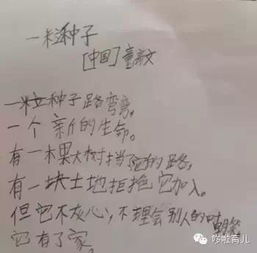 一粒种子
[中国]童彦文
一粒种子路弯弯。
一个新的生命。
有一棵大树挡它的路,
有一块土地拒抱它加入。
但它不灰心,不理会别人的嘲笑。
它有了家
哆啦育儿